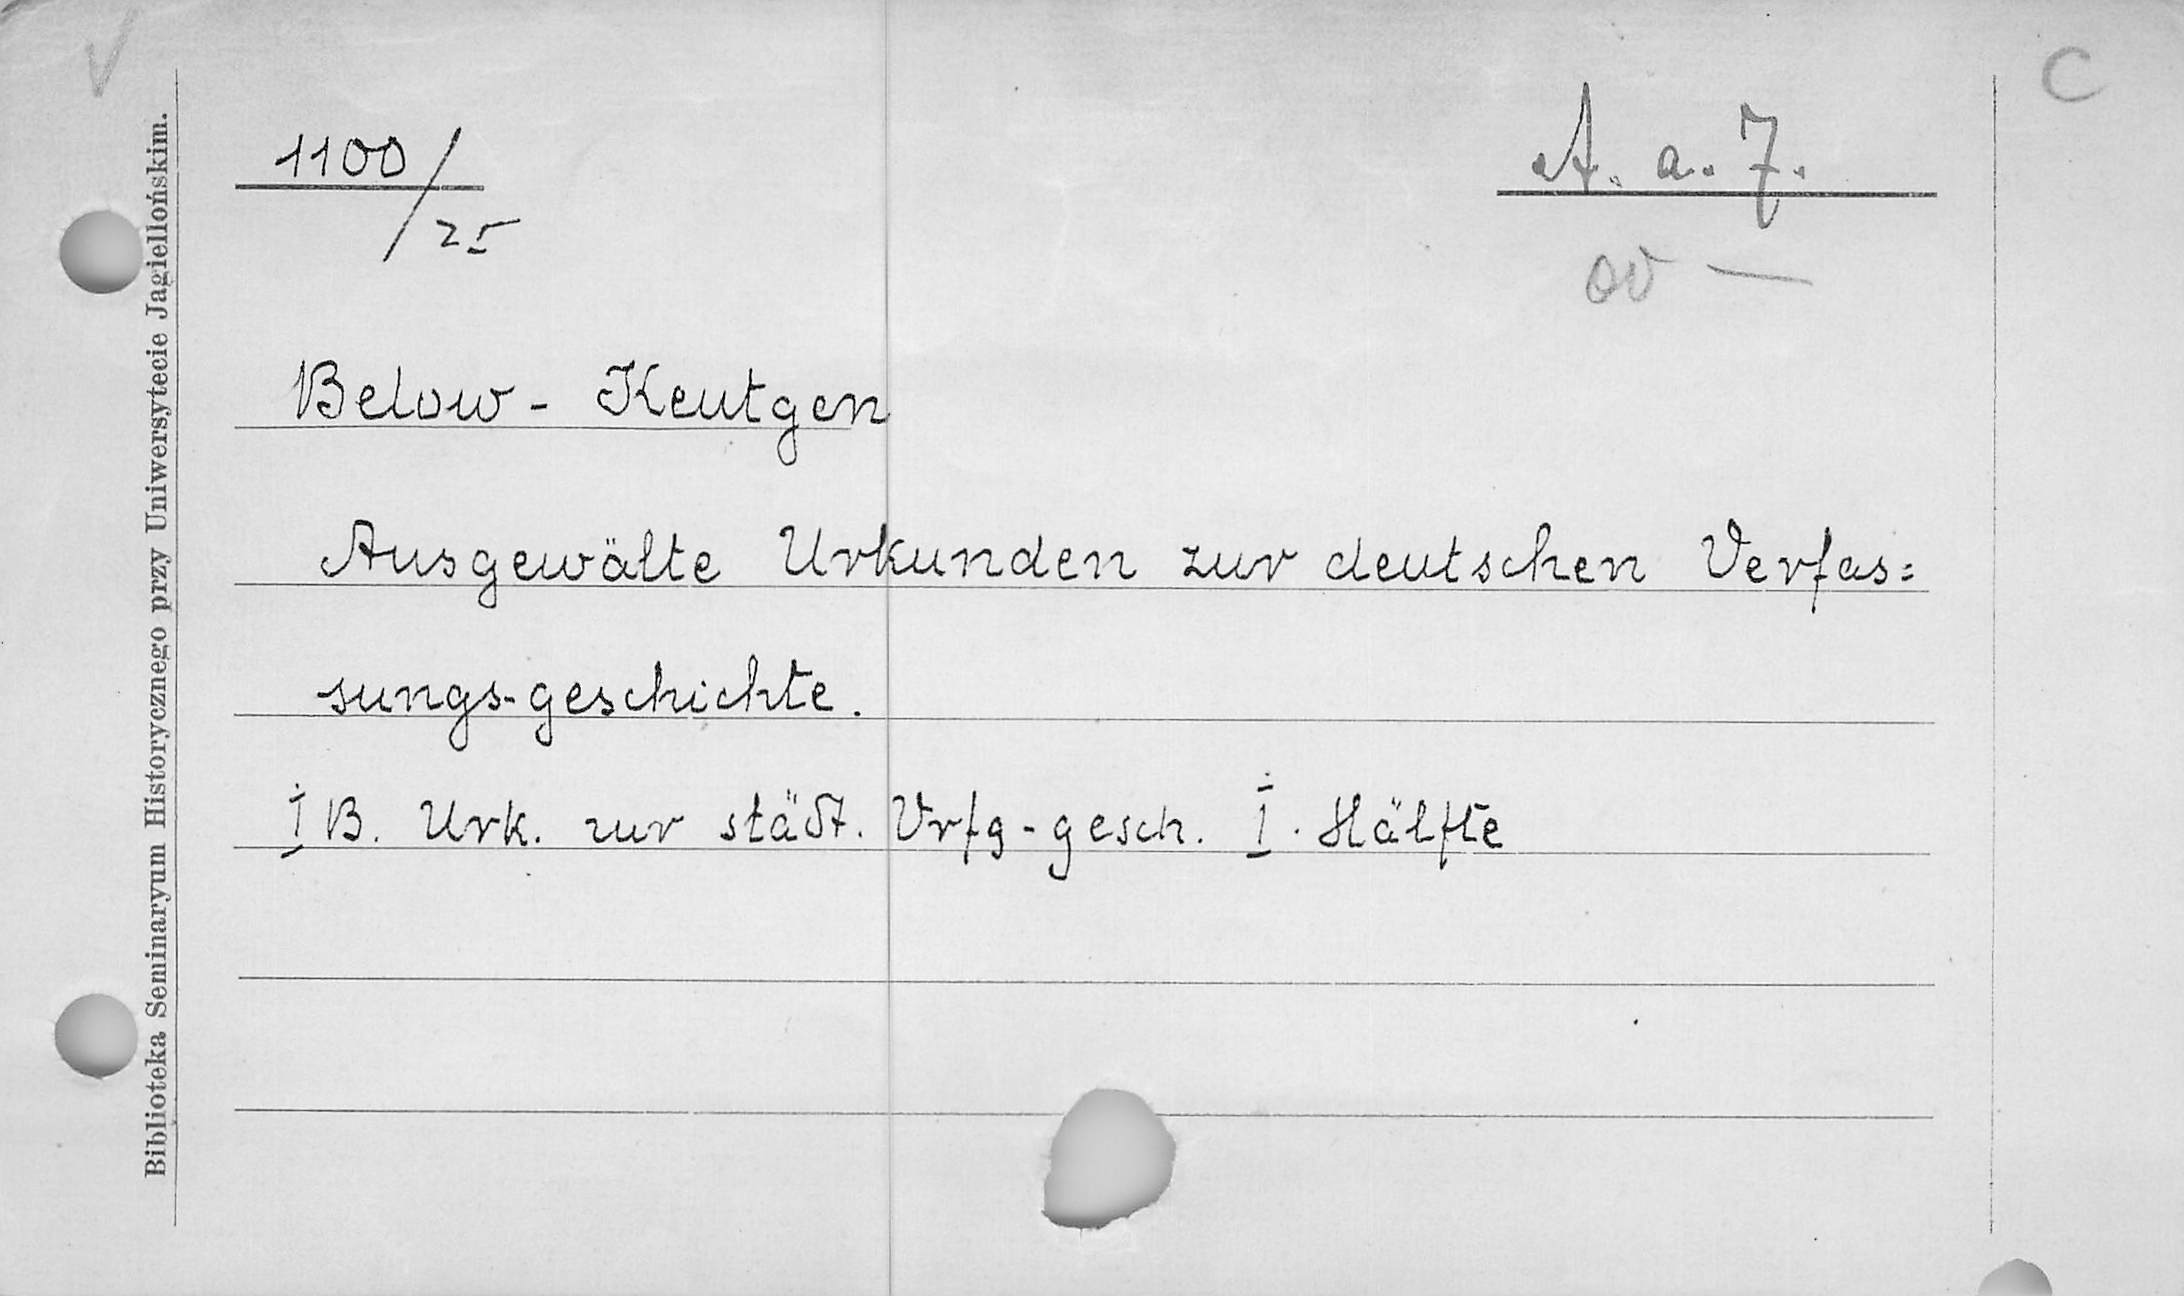 V
C
1100/25
A. a. 7.
Below - Keutgen
Ausgewälte Urkunden zur deutschen Verfas=
sungs-geschichte.
I B. Urk. zur städt. Vrfg-gesch. I. Hälfte
Biblioteka Seminaryum Historycznego przy Uniwersytecie Jagiellońskim.